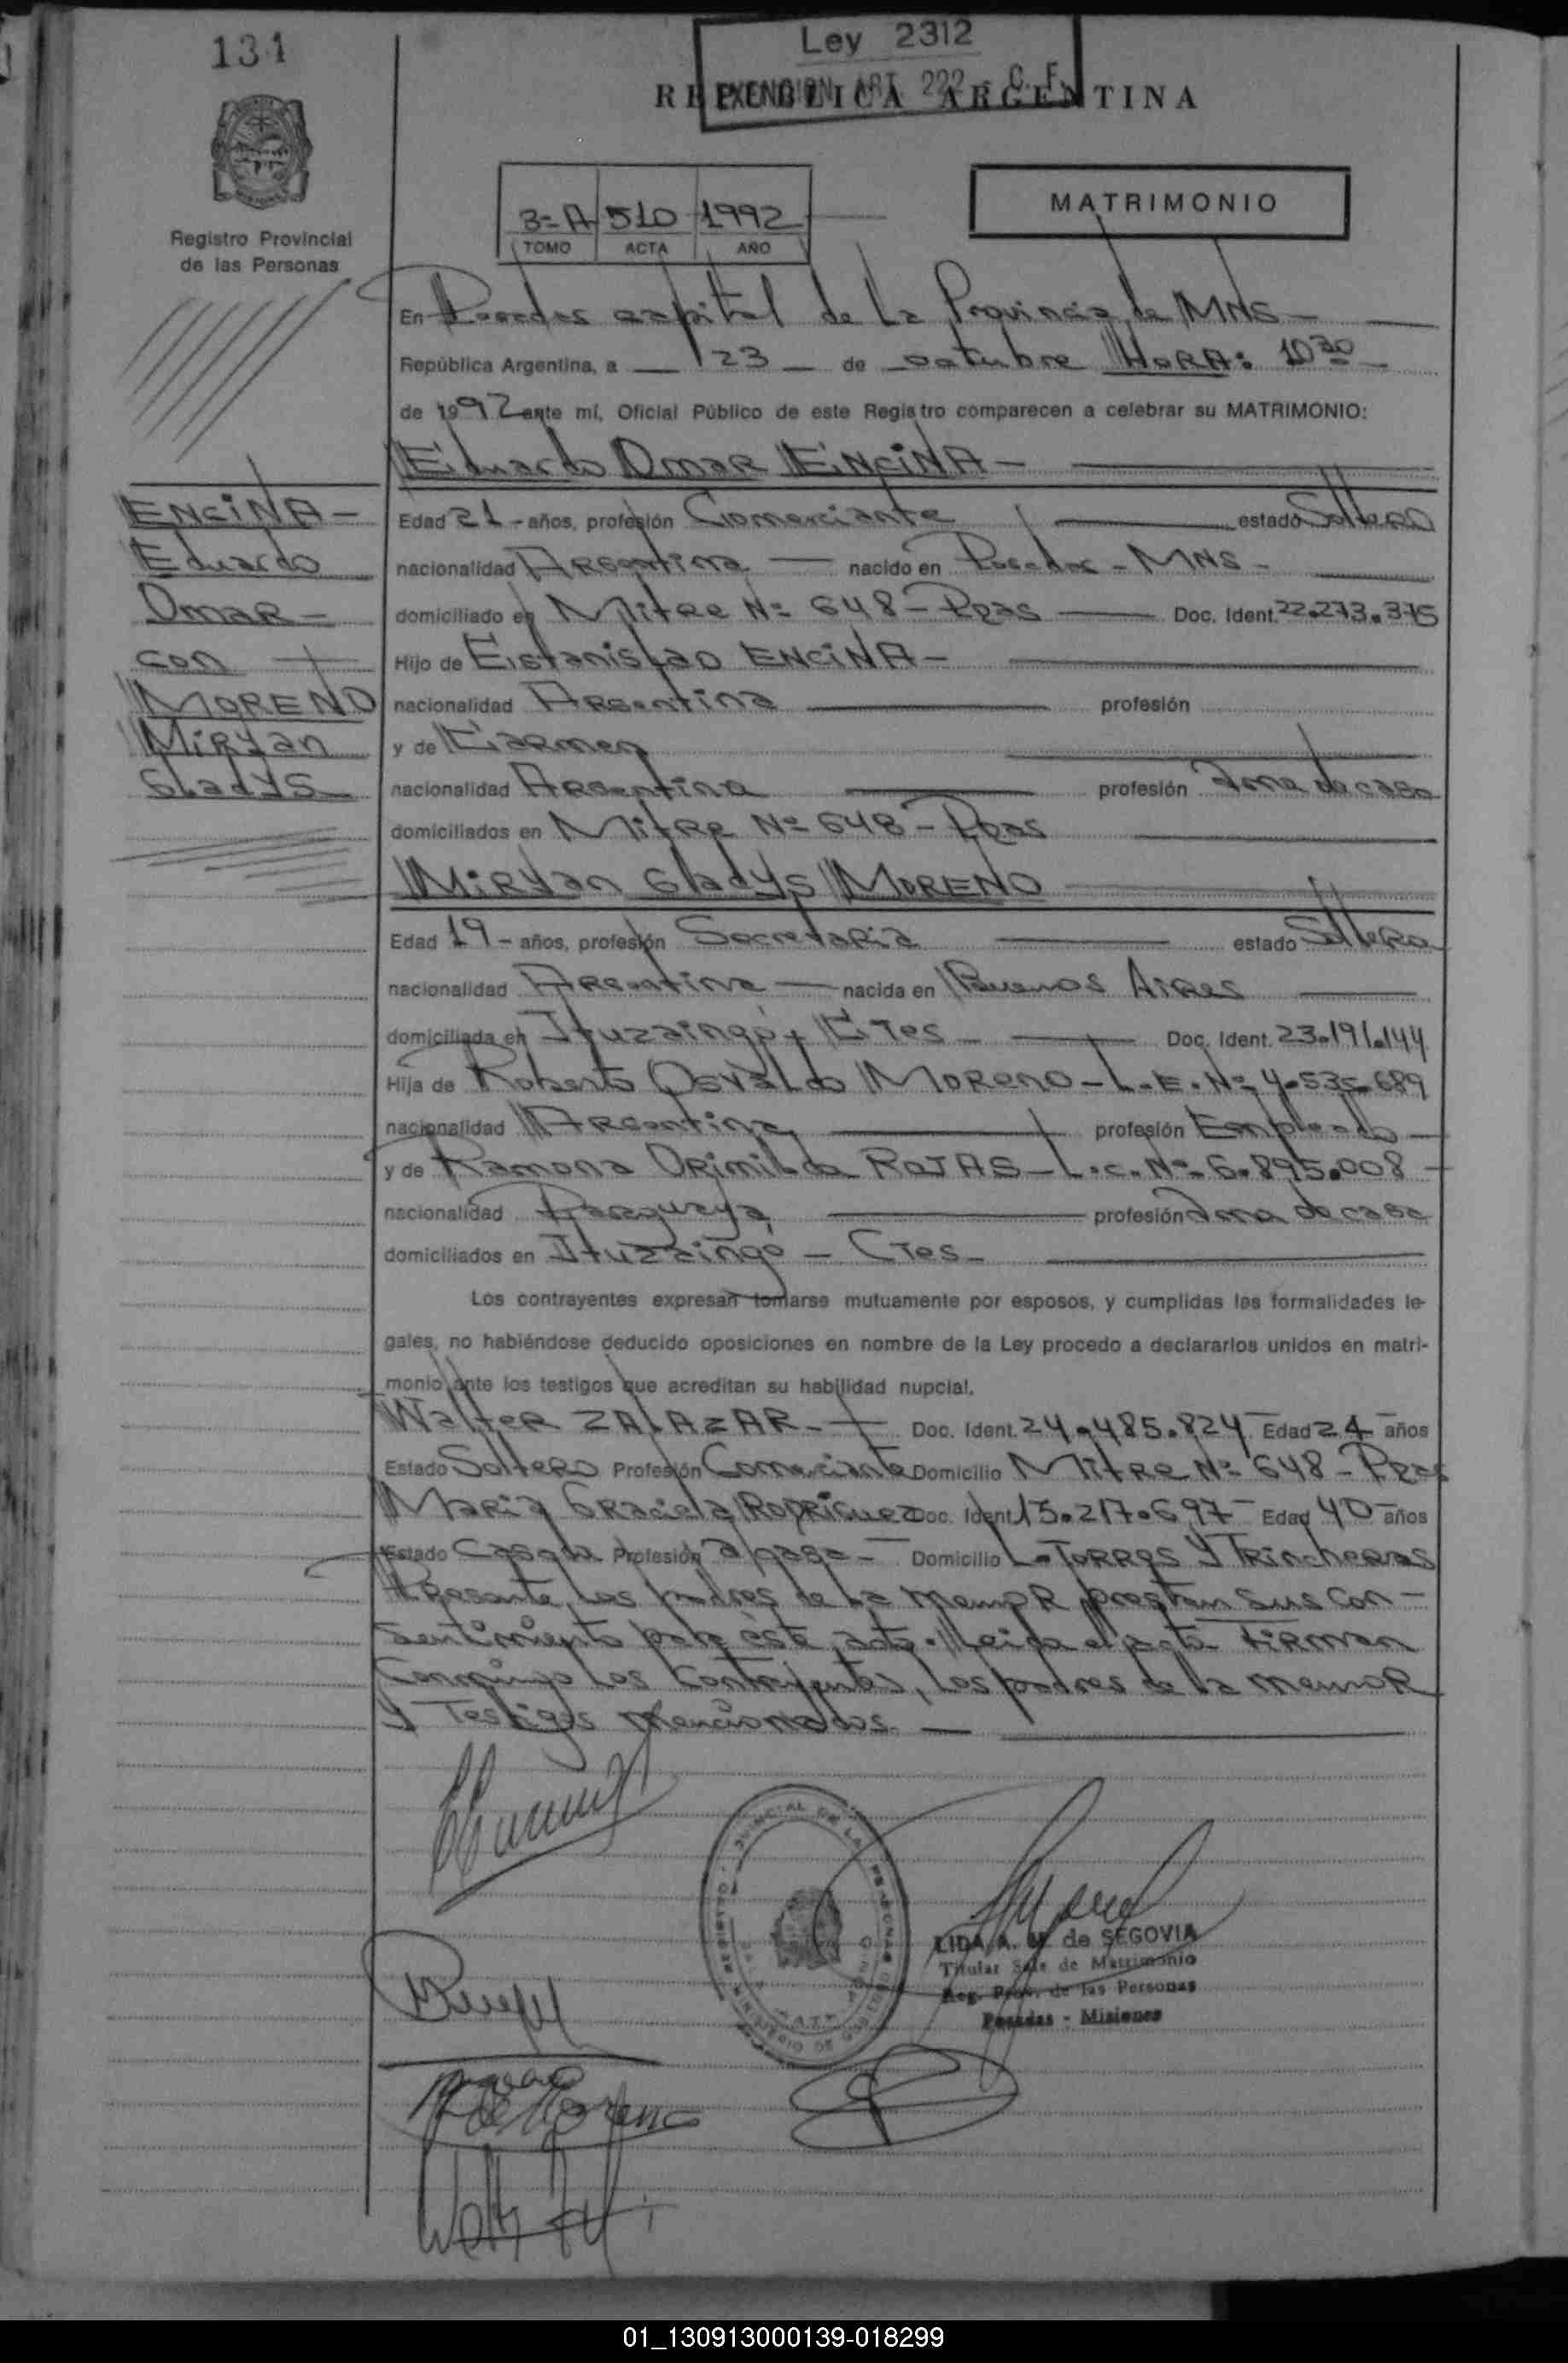 131
Ley 2312
EXENCION ART 222 - C. F.
REPUBLICA ARGENTINA
Registro Provincial
de las Personas
3=A 510 1992
TOMO ACTA AÑO
MATRIMONIO
En Posadas capital de La Provincia de MNS -
República Argentina, a 23 de octubre HORA: 10 30
de 1992 ante mí, Oficial Público de este Registro comparecen a celebrar su MATRIMONIO:
Eduardo Omar ENCINA -
ENCINA -
Eduardo
Omar -
con
MORENO
Miryan
Gladys
Edad 21 - años, profesión Comerciante estado Soltero
nacionalidad Argentina nacido en Posadas - MNS -
domiciliado en Mitre Nº 648 - Pdas Doc. Ident. 22.273.375
Hijo de Estanislao ENCINA -
nacionalidad Argentina profesión
y de Carmen
nacionalidad Argentina profesión Ama de casa
domiciliados en Mitre Nº 648 - Pdas
Miryan Gladys MORENO
Edad 19 - años, profesión Secretaria estado Soltera
nacionalidad Argentina nacida en Buenos Aires
domiciliada en Ituzaingó, Ctes - Doc. Ident. 23.191.144
Hija de Roberto Osvaldo Moreno - L.E. Nº 4.535.689
nacionalidad Argentina profesión Empleado -
y de Ramona Orimilda ROJAS - L.C. Nº 6.895.008 -
nacionalidad Paraguaya profesión Ama de casa
domiciliados en Ituzaingó - Ctes -
Los contrayentes expresan tomarse mutuamente por esposos, y cumplidas las formalidades le-
gales, no habiéndose deducido oposiciones en nombre de la Ley procedo a declararlos unidos en matri-
monio ante los testigos que acreditan su habilidad nupcial.
Walter ZALAZAR - Doc. Ident. 24.485.824 Edad 24 años
Estado Soltero Profesión Comerciante Domicilio Mitre Nº 648 - Pdas
Maria Graciela Rodriguez Doc. Ident. 13.217.697 Edad 40 años
Estado Casada Profesión a/casa - Domicilio L. Torres y Trincheras
Presente, Los padres de La menor prestan sus con-
sentimiento para éste acto. Leida el acta Firman
Conmigo Los Contrayentes, Los padres de La menor
y Testigos mencionados. -
LIDA A. M. de SEGOVIA
Titular Sala de Matrimonio
Reg. Prov. de las Personas
Posadas - Misiones
01_130913000139-018299